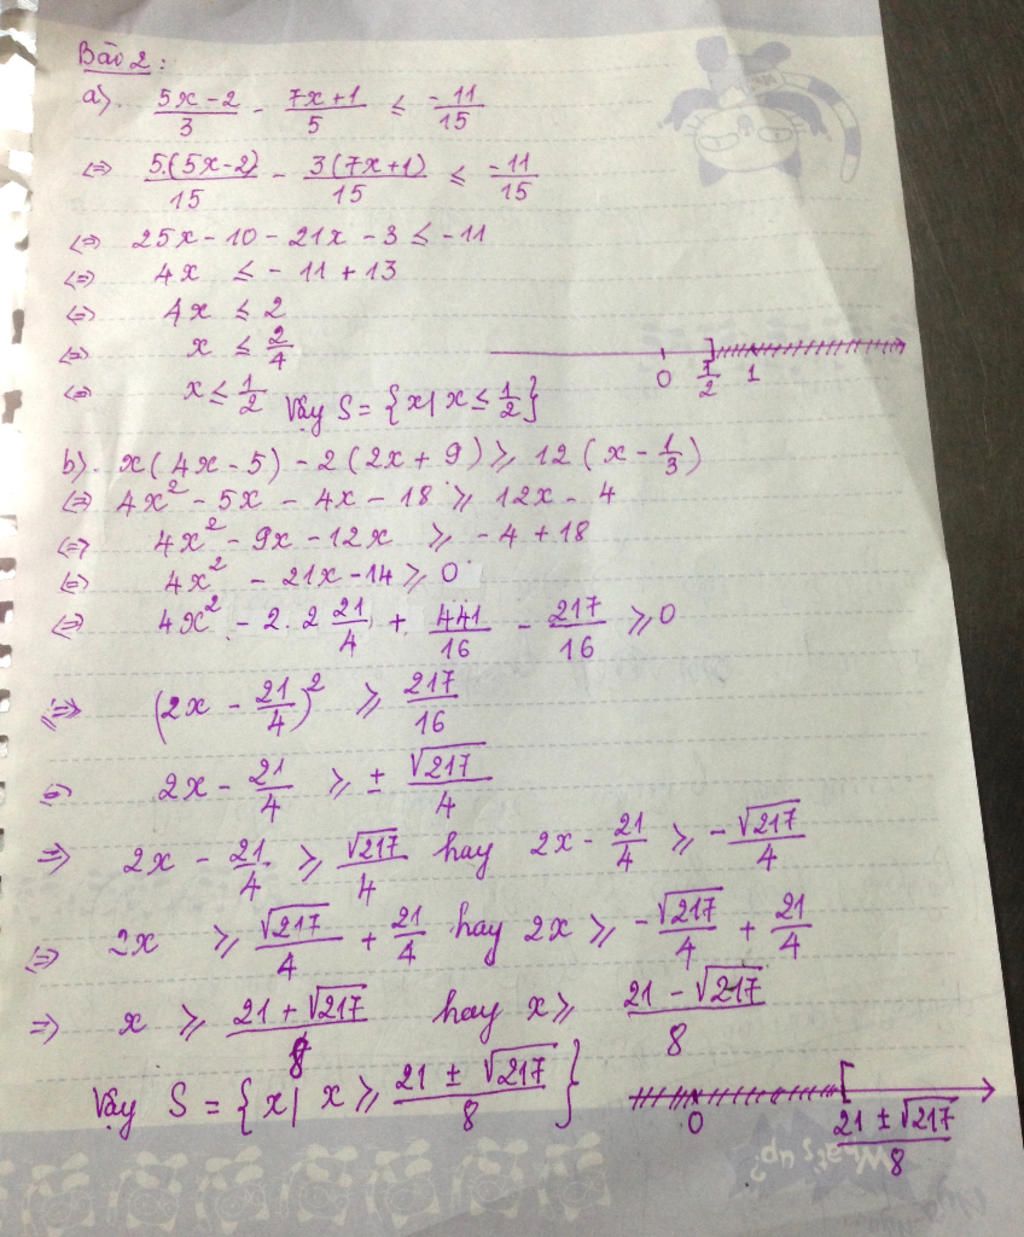 Bài 2:
a). (5x - 2)/3 - (7x + 1)/5 ≤ -11/15
<=> 5.(5x-2)/15 - 3(7x+1)/15 ≤ -11/15
<=> 25x - 10 - 21x - 3 ≤ -11
<=> 4x ≤ - 11 + 13
<=> 4x ≤ 2
<=> x ≤ 2/4
0 1/2 1
<=> x ≤ 1/2 Vậy S = {x| x ≤ 1/2}
b). x(4x - 5) - 2(2x + 9) ≥ 12(x - 1/3)
<=> 4x² - 5x - 4x - 18 ≥ 12x - 4
<=> 4x² - 9x - 12x ≥ - 4 + 18
<=> 4x² - 21x - 14 ≥ 0
<=> 4x² - 2. 2 21/4 + 441/16 - 217/16 ≥ 0
<=> (2x - 21/4)² ≥ 217/16
<=> 2x - 21/4 ≥ ± √217/4
=> 2x - 21/4 ≥ √217/4 hay 2x - 21/4 ≥ -√217/4
<=> 2x ≥ √217/4 + 21/4 hay 2x ≥ -√217/4 + 21/4
=> x ≥ (21 + √217)/8 hay x ≥ (21 - √217)/8
Vậy S = {x| x ≥ (21 ± √217)/8}
0 (21 ± √217)/8
What's up?